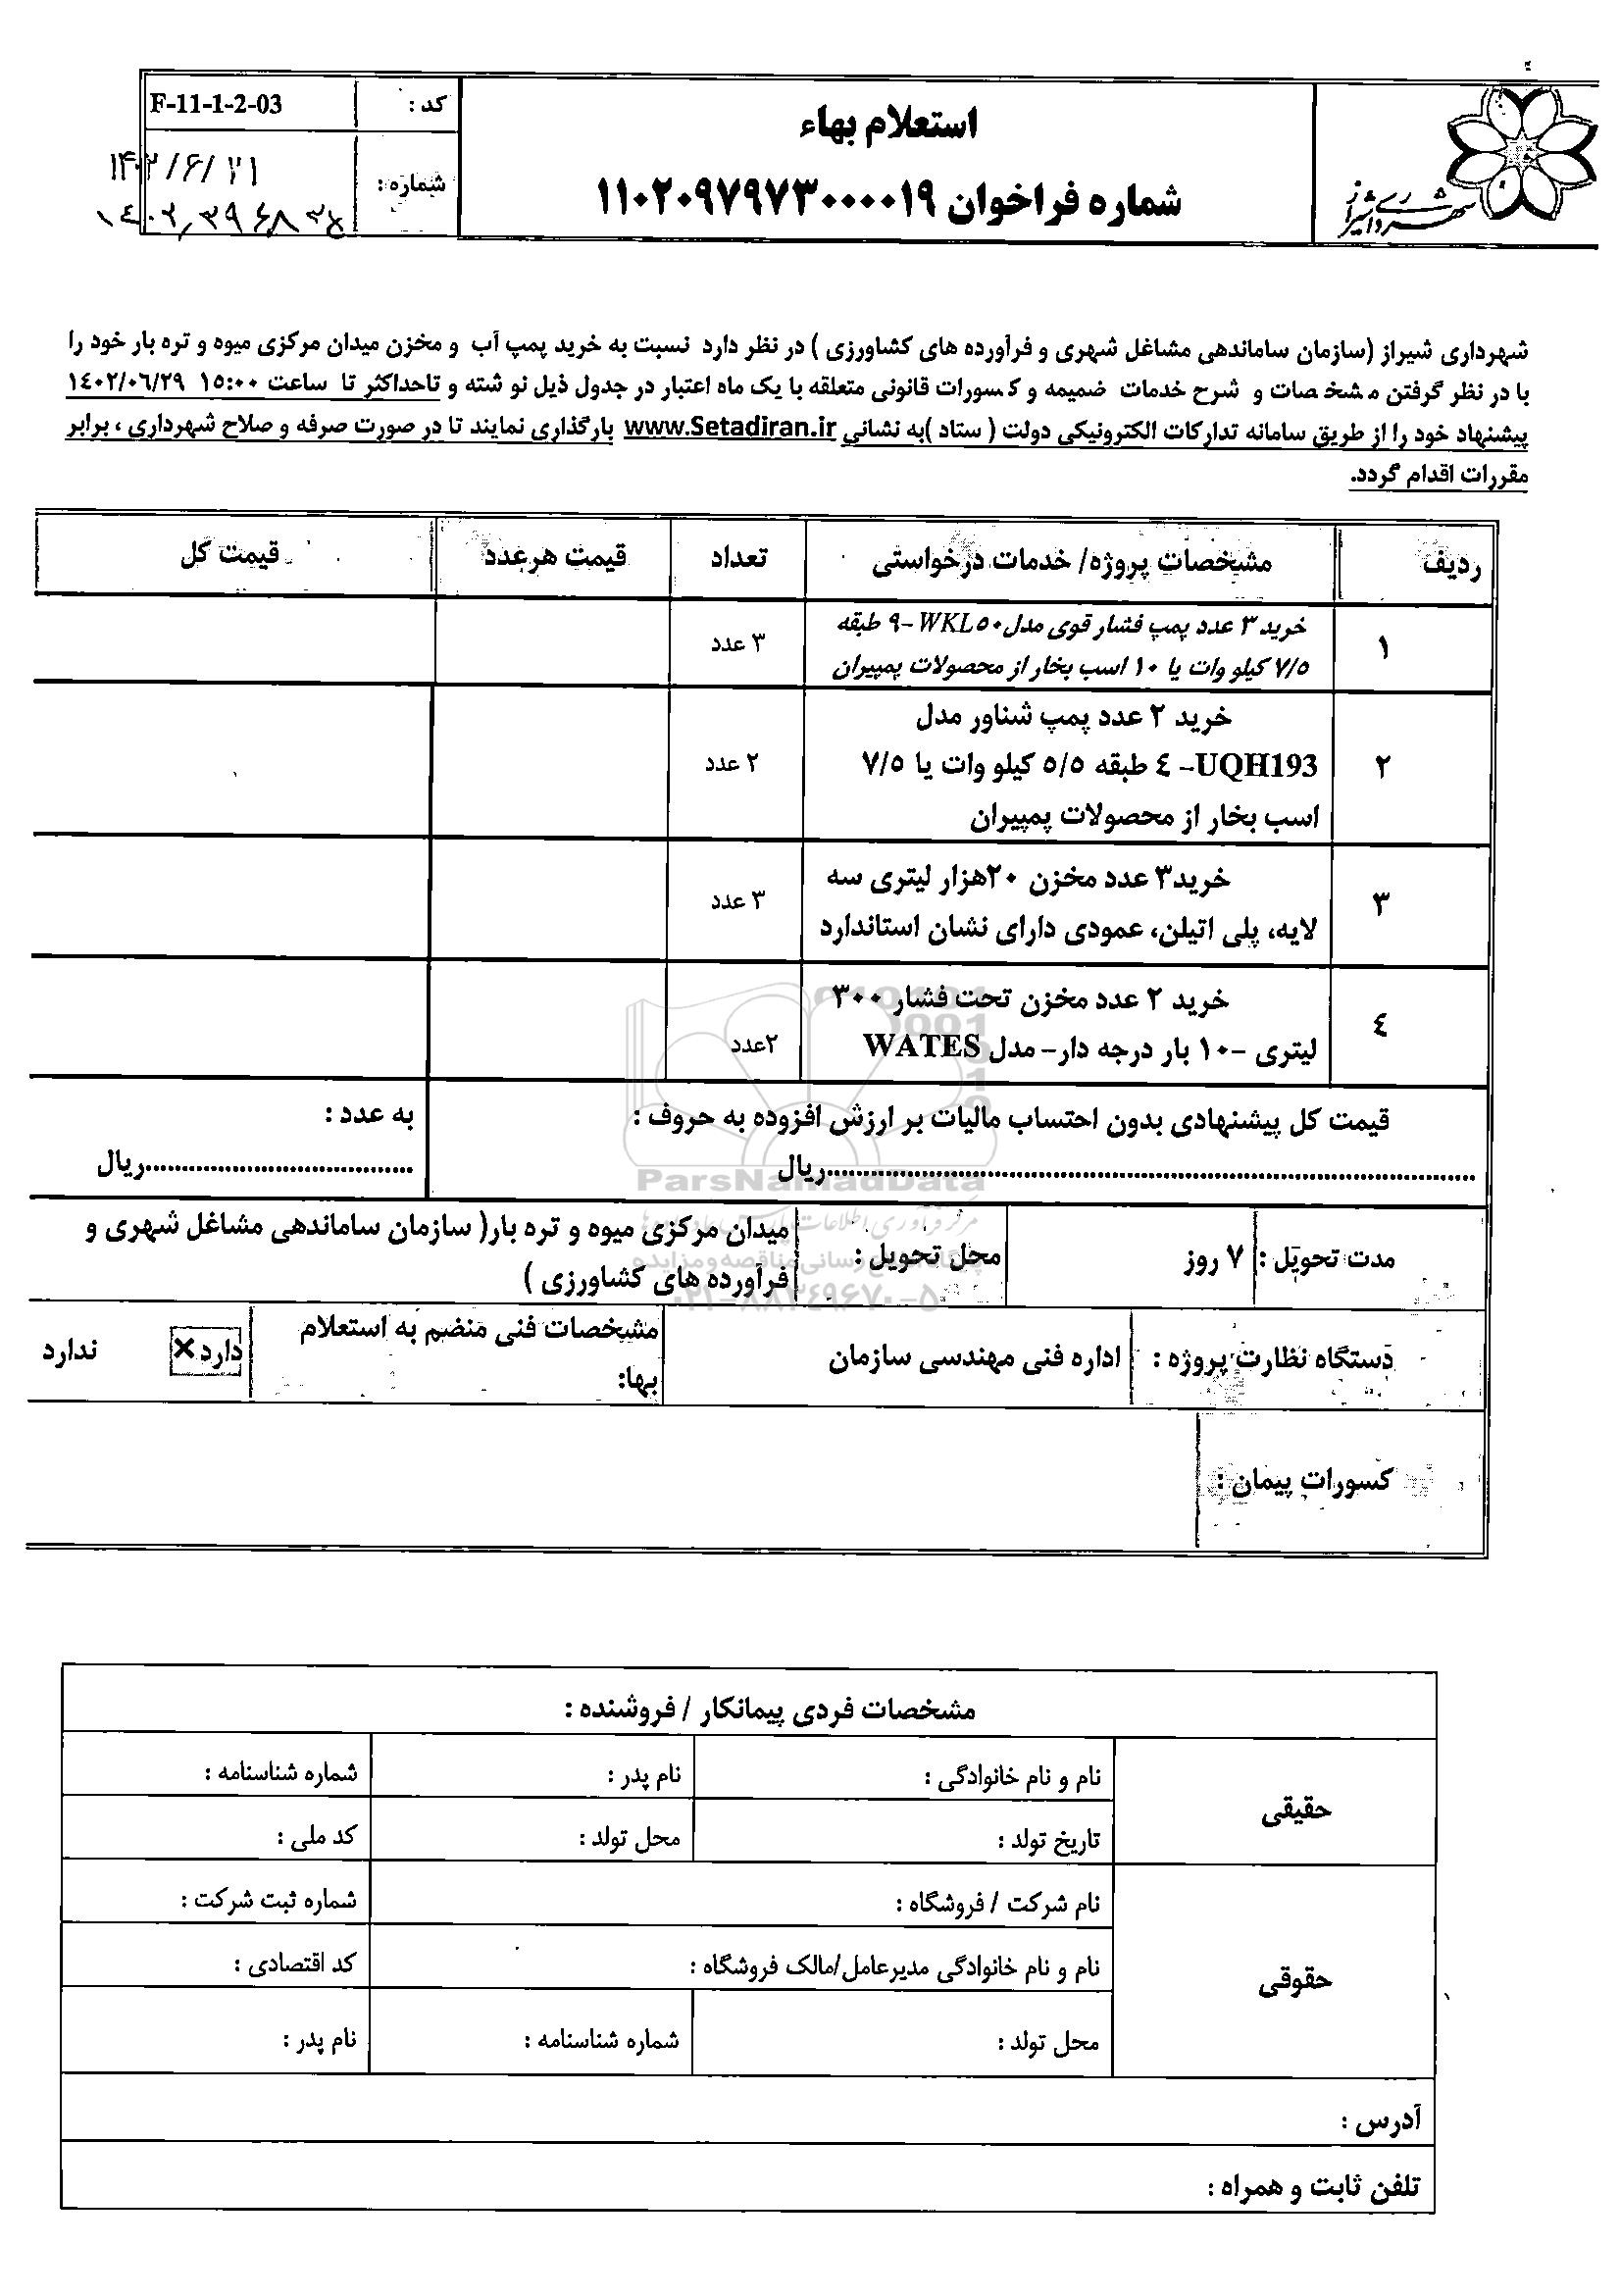 شهرداری شیراز
استعلام بهاء
شماره فراخوان ۱۱۰۲۰۹۷۹۷۳۰۰۰۰۱۹
کد :
F-11-1-2-03
شماره :
شهرداری شیراز (سازمان ساماندهی مشاغل شهری و فرآورده های کشاورزی ) در نظر دارد نسبت به خرید پمپ آب و مخزن میدان مرکزی میوه و تره بار خود را
با در نظر گرفتن مشخصات و شرح خدمات ضمیمه و کسورات قانونی متعلقه با یک ماه اعتبار در جدول ذیل نوشته و تاحداکثر تا ساعت ۱۵:۰۰ ۱٤۰۲/۰۶/۲۹
پیشنهاد خود را از طریق سامانه تدارکات الکترونیکی دولت ( ستاد )به نشانی www.Setadiran.ir بارگذاری نمایند تا در صورت صرفه و صلاح شهرداری ، برابر
مقررات اقدام گردد.
ردیف
مشخصات پروژه/ خدمات درخواستی
تعداد
قیمت هرعدد
قیمت کل
۱
خرید ۳ عدد پمپ فشار قوی مدل WKL۵۰ -۹ طبقه
۷/۵ کیلو وات یا ۱۰ اسب بخار از محصولات پمپیران
۳ عدد
۲
خرید ۲ عدد پمپ شناور مدل
UQH193- ٤ طبقه ۵/۵ کیلو وات یا ۷/۵
اسب بخار از محصولات پمپیران
۲ عدد
۳
خرید۳ عدد مخزن ۲۰هزار لیتری سه
لایه، پلی اتیلن، عمودی دارای نشان استاندارد
۳ عدد
٤
خرید ۲ عدد مخزن تحت فشار ۳۰۰
لیتری -۱۰ بار درجه دار- مدل WATES
۲عدد
قیمت کل پیشنهادی بدون احتساب مالیات بر ارزش افزوده به حروف :
ریال
به عدد :
ریال
ParsNamadData
مدت تحویل :
۷ روز
محل تحویل :
میدان مرکزی میوه و تره بار( سازمان ساماندهی مشاغل شهری و
فرآورده های کشاورزی )
۰۲۱-۸۸۳۴۹۶۷۰-۵
دستگاه نظارت پروژه :
اداره فنی مهندسی سازمان
مشخصات فنی منضم به استعلام
بها:
دارد ×
ندارد
کسورات پیمان :
مشخصات فردی پیمانکار / فروشنده :
حقیقی
نام و نام خانوادگی :
نام پدر :
شماره شناسنامه :
تاریخ تولد :
محل تولد :
کد ملی :
حقوقی
نام شرکت / فروشگاه :
شماره ثبت شرکت :
نام و نام خانوادگی مدیرعامل/مالک فروشگاه :
کد اقتصادی :
محل تولد :
شماره شناسنامه :
نام پدر :
آدرس :
تلفن ثابت و همراه :